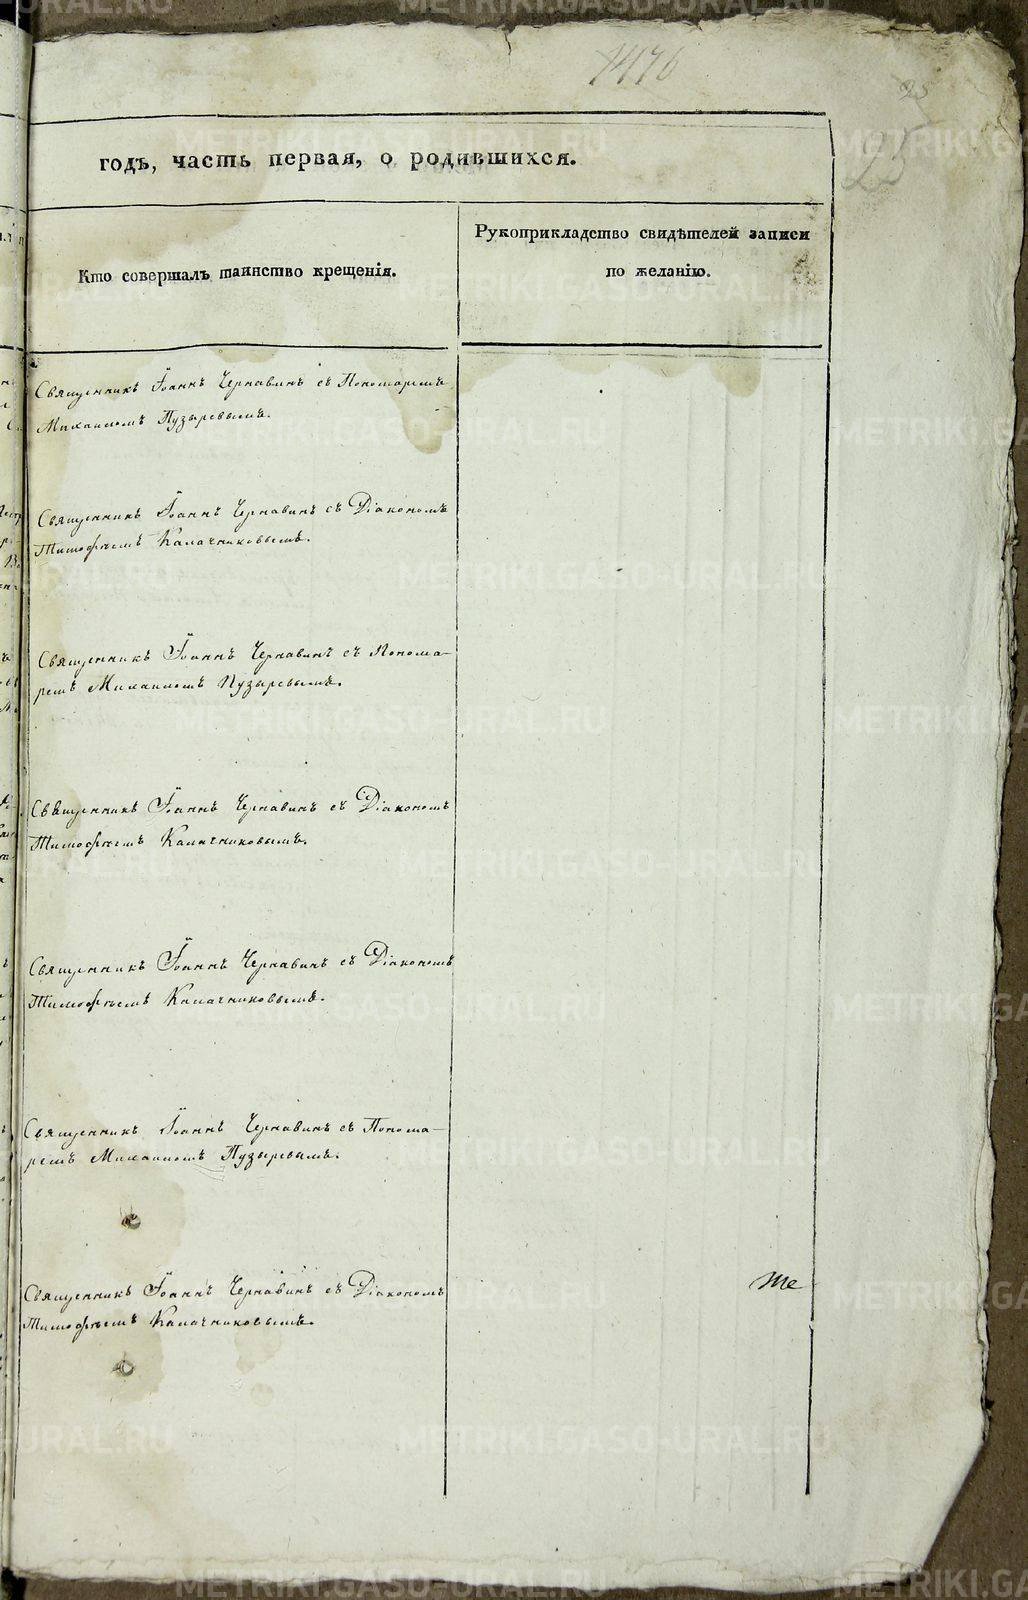 1476
25
23
годъ, часть первая, о родившихся.
Кто совершалъ таинство крещенія.
Рукоприкладство свидѣтелей записи
по желанію.
Священникъ Іоаннъ Чернавинъ съ Пономаремъ
Михаиломъ Пузыревымъ.
Священникъ Іоаннъ Чернавинъ съ Діакономъ
Тимофѣемъ Калачниковымъ.
Священникъ Іоаннъ Чернавинъ съ Понома-
ремъ Михаиломъ Пузыревымъ.
Священникъ Іоаннъ Чернавинъ съ Діакономъ
Тимофѣемъ Калачниковымъ.
Священникъ Іоаннъ Чернавинъ съ Діакономъ
Тимофѣемъ Калачниковымъ.
Священникъ Іоаннъ Чернавинъ съ Понома-
ремъ Михаиломъ Пузыревымъ.
Священникъ Іоаннъ Чернавинъ съ Діакономъ
Тимофѣемъ Калачниковымъ.
те
METRIKI.GASO-URAL.RU